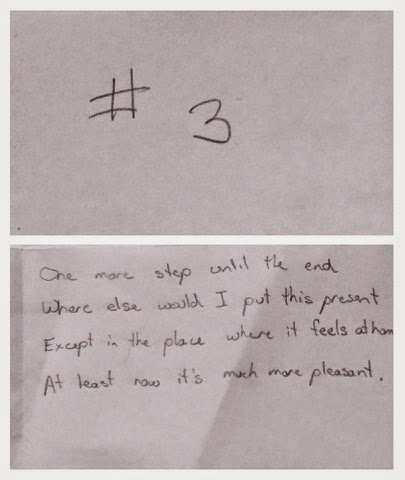 # 3
One more step until the end
Where else would I put this present
Except in the place where it feels at hom
At least now it's much more pleasant.